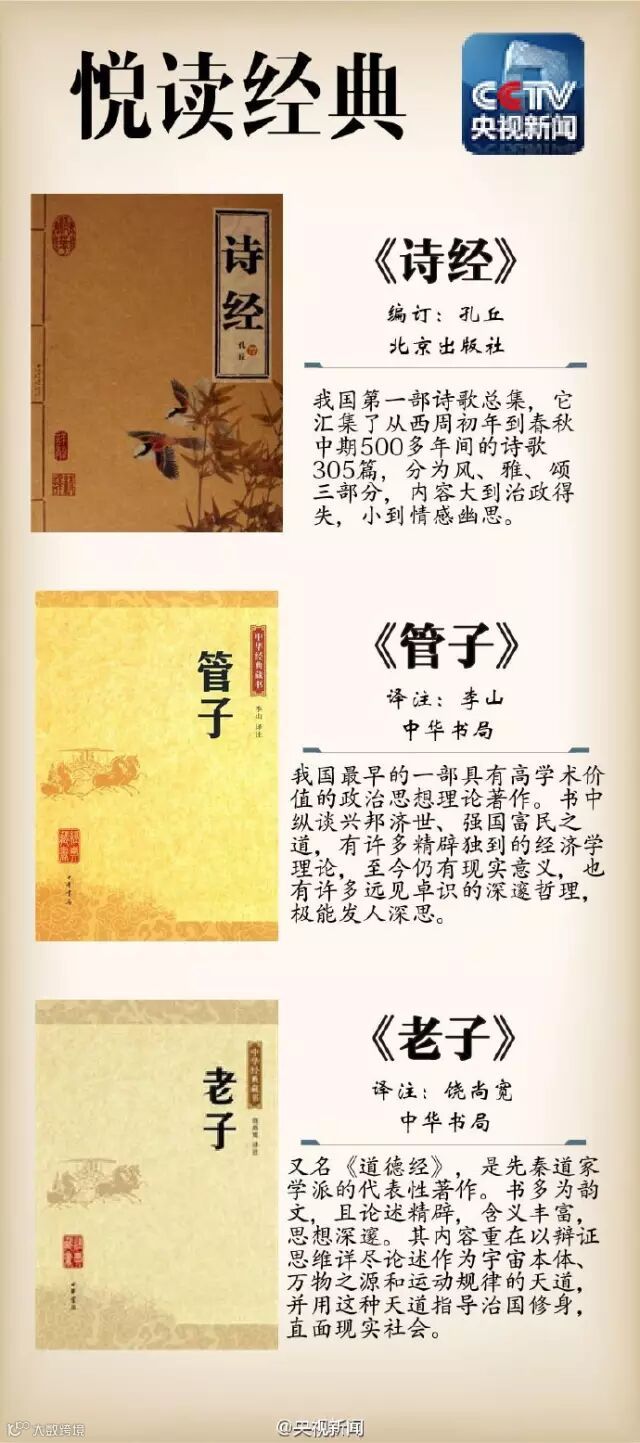 悦读经典
CCTV
央视新闻
诗经
孔丘
《诗经》
编订：孔丘
北京出版社
我国第一部诗歌总集，它
汇集了从西周初年到春秋
中期500多年间的诗歌
305篇，分为风、雅、颂
三部分，内容大到治政得
失，小到情感幽思。
中华经典藏书
管子
李山 译注
中华书局
《管子》
译注：李山
中华书局
我国最早的一部具有高学术价
值的政治思想理论著作。书中
纵谈兴邦济世、强国富民之
道，有许多精辟独到的经济学
理论，至今仍有现实意义，也
有许多远见卓识的深邃哲理，
极能发人深思。
中华经典藏书
老子
饶尚宽 译注
中华书局
《老子》
译注：饶尚宽
中华书局
又名《道德经》，是先秦道家
学派的代表性著作。书多为韵
文，且论述精辟，含义丰富，
思想深邃。其内容重在以辩证
思维详尽论述作为宇宙本体、
万物之源和运动规律的天道，
并用这种天道指导治国修身，
直面现实社会。
@央视新闻
大数跨境